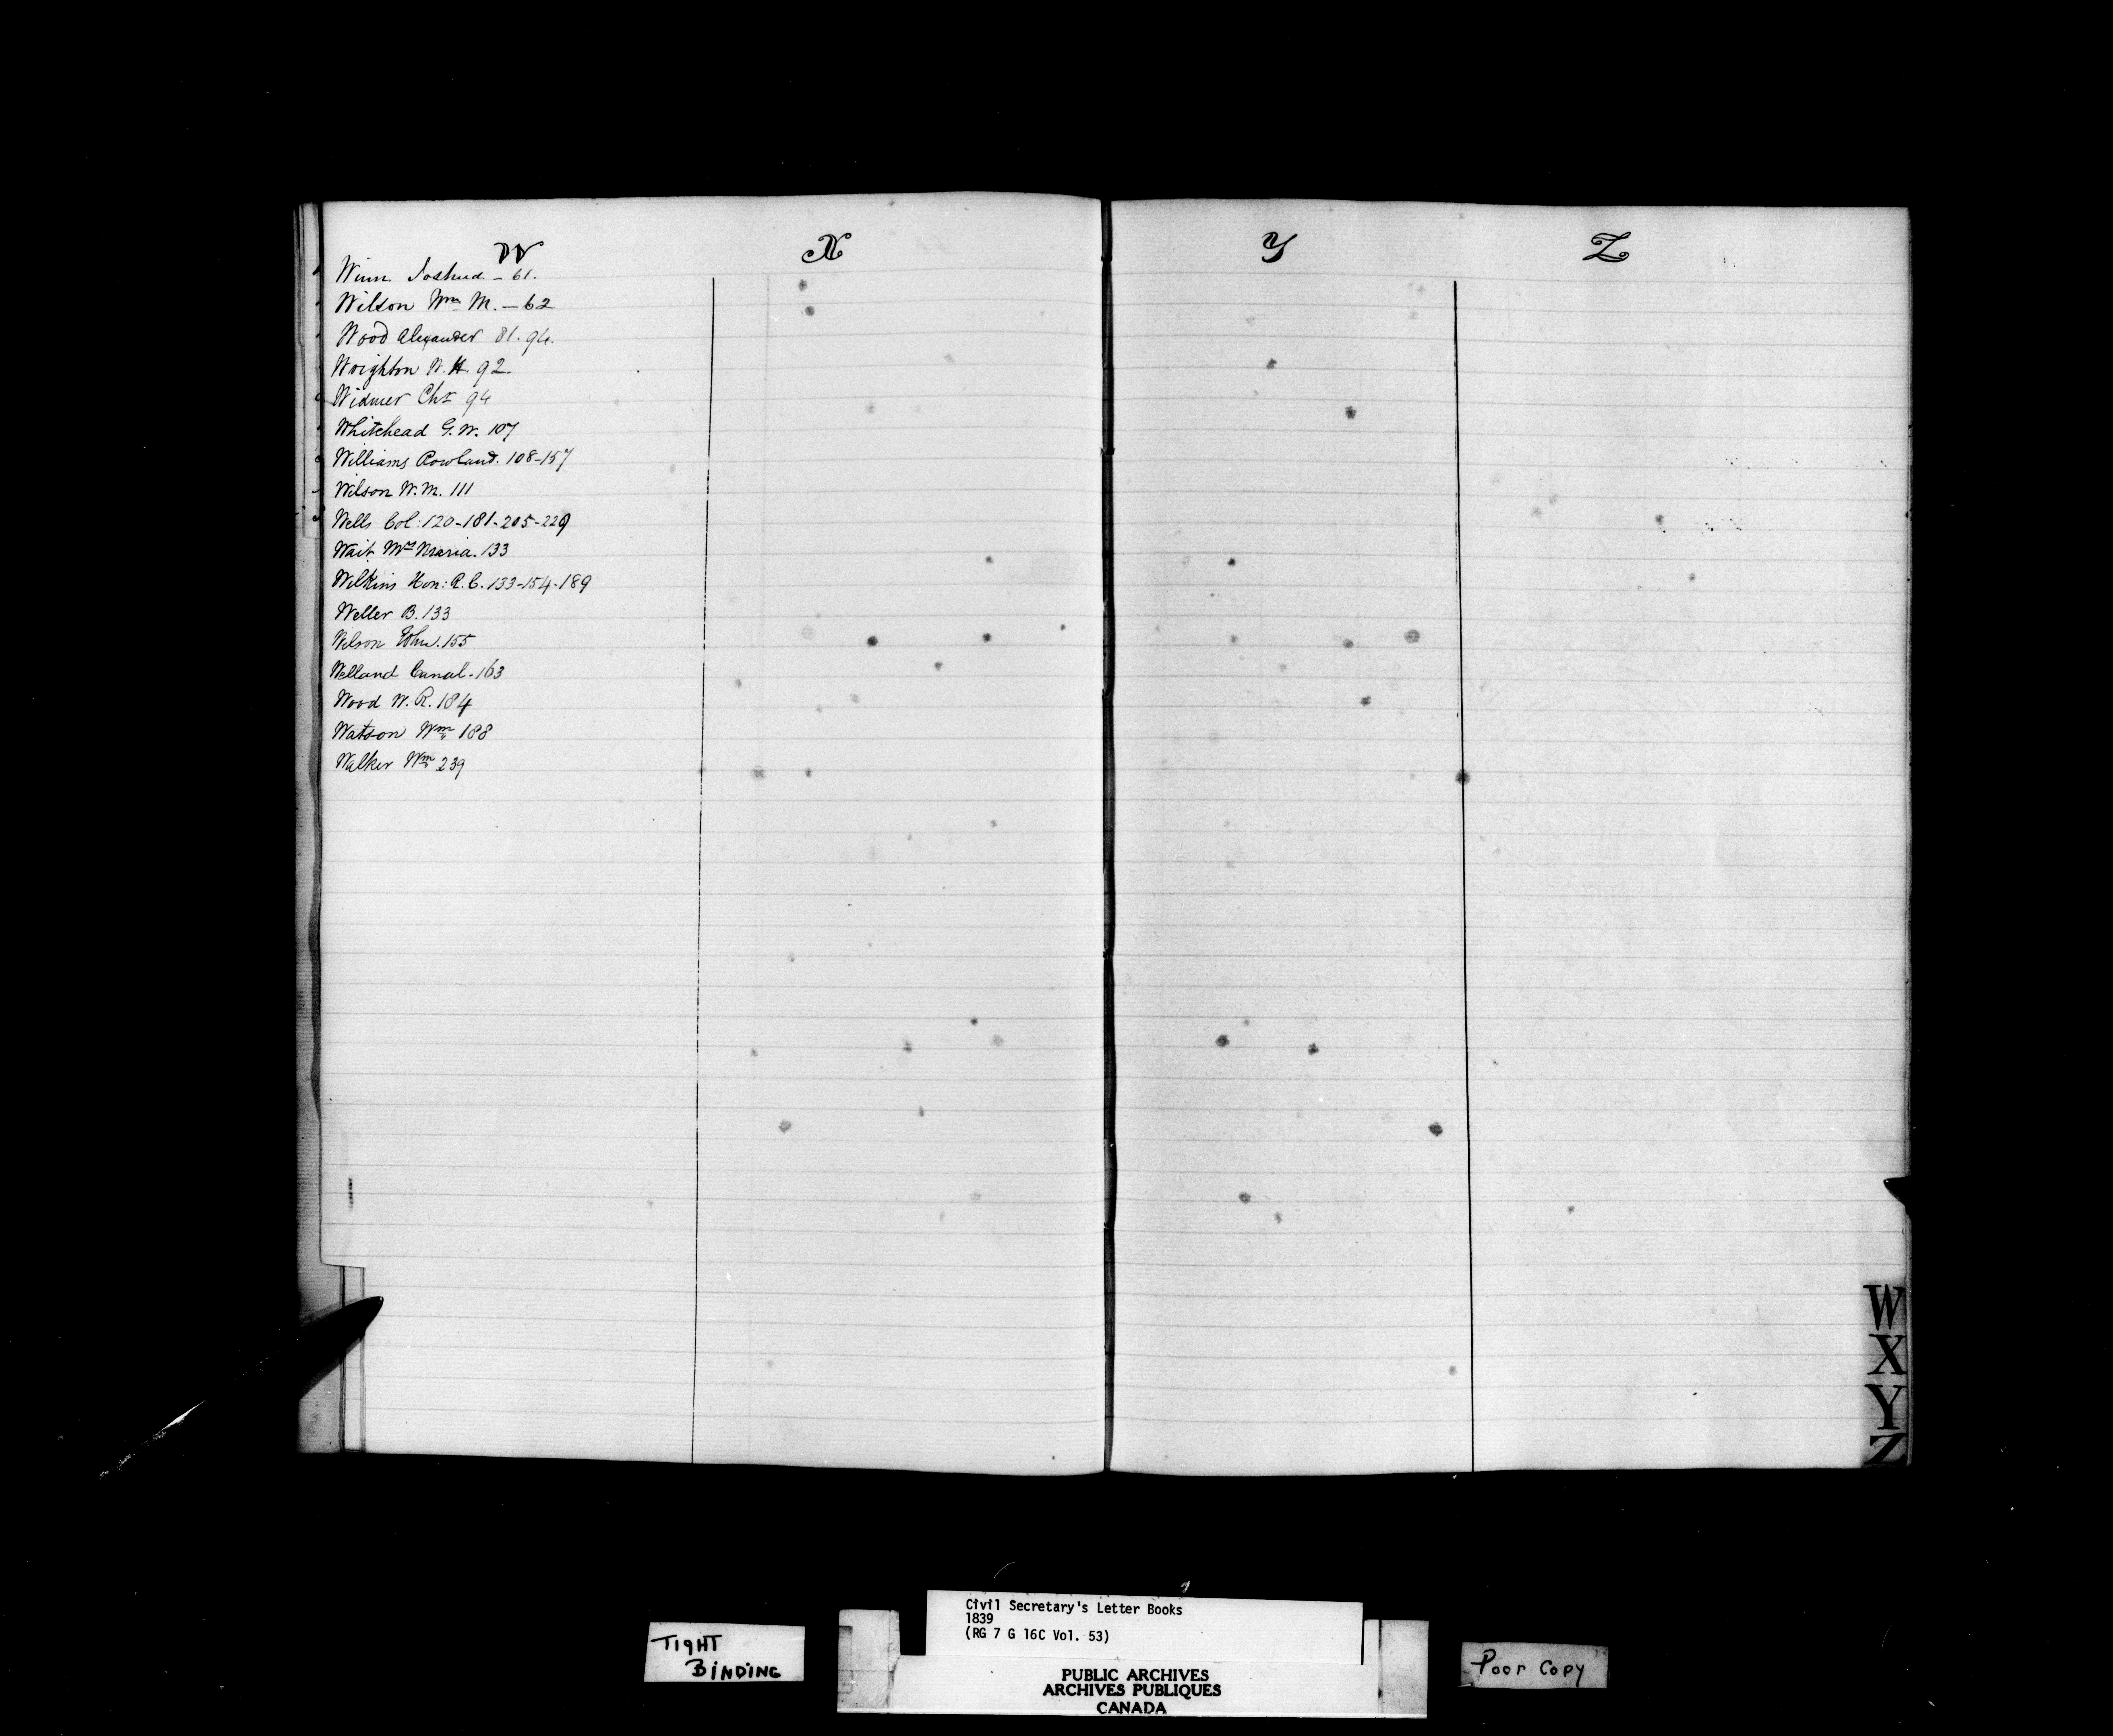 W
Winn Joshua - 61.
Wilson Wm M. - 62
Wood Alexander 81. 94.
Wrighton W. H. 92.
Widmer Chr 94
Whitehead G. W. 107
Williams Rowland. 108-157
Wilson W. M. 111
Wells Col: 120-181-205-229
Wait Mrs Maria. 133
Wilkins Hon: R. C. 133-154-189
Weller B. 133
Wilson John. 155
Welland Canal. 163
Wood W. R. 184
Watson Wm 188
Walker Wm 239
X
Y
Z
W
X
Y
Z
TIGHT
BINDING
Civil Secretary's Letter Books
1839
(RG 7 G 16C Vol. 53)
PUBLIC ARCHIVES
ARCHIVES PUBLIQUES
CANADA
Poor Copy